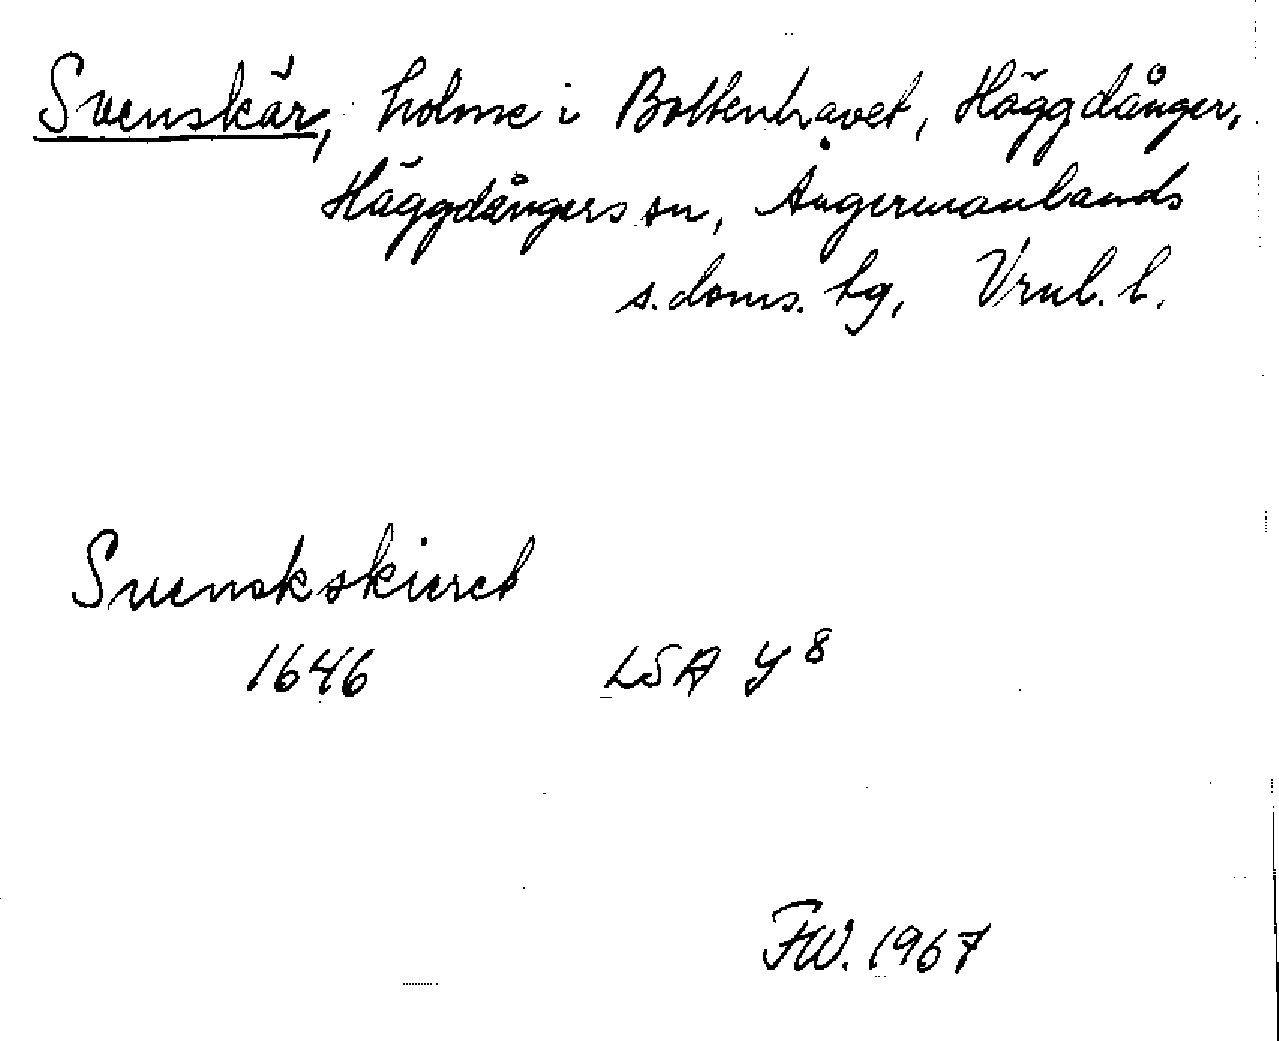 Svenskär, holme i Bottenhavet, Häggdånger,
Häggdångers sn, Ångermanlands
s. doms. tg, Vrnl. l.
Svenskskieret
1646 LSA Y 8
FW. 1967